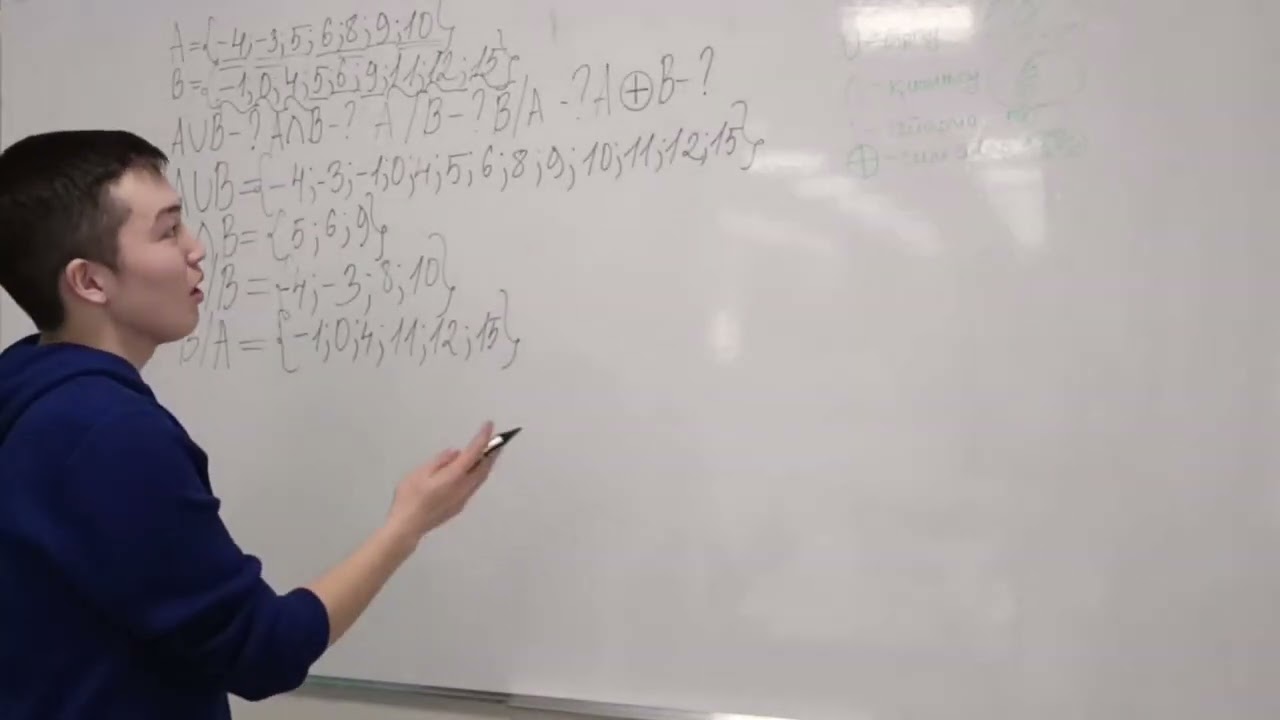 A={-4;-3;5;6;8;9;10}
B={-1,0,4,5,6,9,11,12,15}
A∪B-? A∩B-? A/B-? B/A-? A⊕B-?
A∪B={-4;-3;-1;0;4;5;6;8;9;10;11;12;15}
∩B={5;6;9}
/B=-4;-3;8;10}
B/A={-1;0;4;11;12;15}
∪-
⊕-